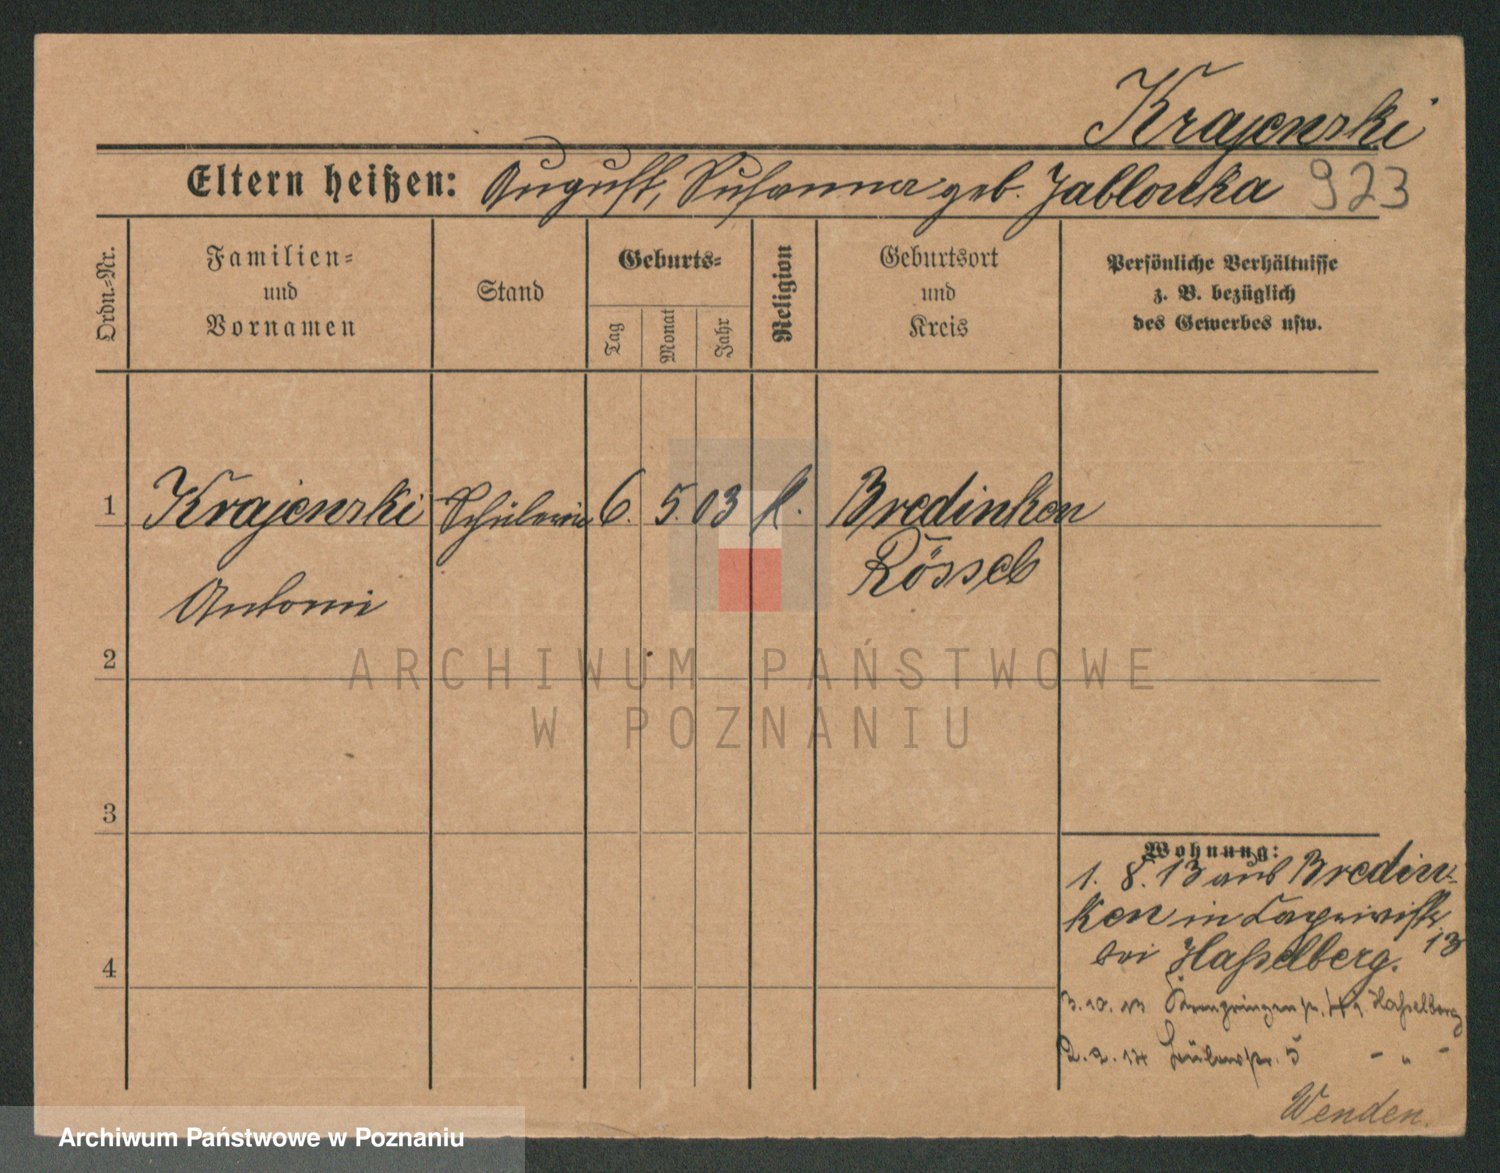 Krajenski
Eltern heißen: August, Susanna geb. Jablonka 923
Ordn.-Nr.
Familien-
und
Vornamen
Stand
Geburts-
Tag
Monat
Jahr
Religion
Geburtsort
und
Kreis
Persönliche Verhältnisse
z. B. bezüglich
des Gewerbes usw.
1 Krajenski Schülerin 6. 5. 03 k. Bredinken
Rössel
Antonie
2
ARCHIWUM PAŃSTWOWE
W POZNANIU
3
Wohnung:
1. 8. 13 aus Bredin-
ken in Caprivistr. 13
bei Hasselberg.
3. 10. 13 Hasselberg
2. 2. 14 5 - " -
4
Wenden.
Archiwum Państwowe w Poznaniu